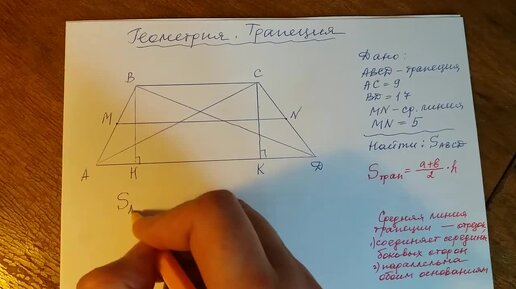 Геометрия. Трапеция
B C
M N
A H K D
S
Дано:
ABCD – трапеция
AC = 9
BD = 17
MN – ср. линия
MN = 5
Найти: S ABCD
S трап = a+b/2 · h
Средняя линия
трапеции — отрезок
1) соединяет середины
боковых сторон
2) параллельна
обоим основаниям